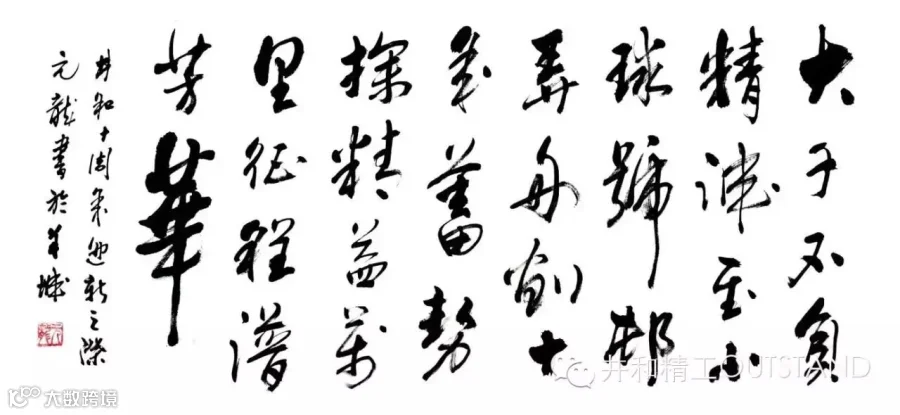 大千不負
精誠至小
球號
弄舟創十
年蓄勢
探精益萬
里征程譜
芳華
井和十周年迎新之際
元龍書於羊城
井和精工OUTSTAND
大数跨境